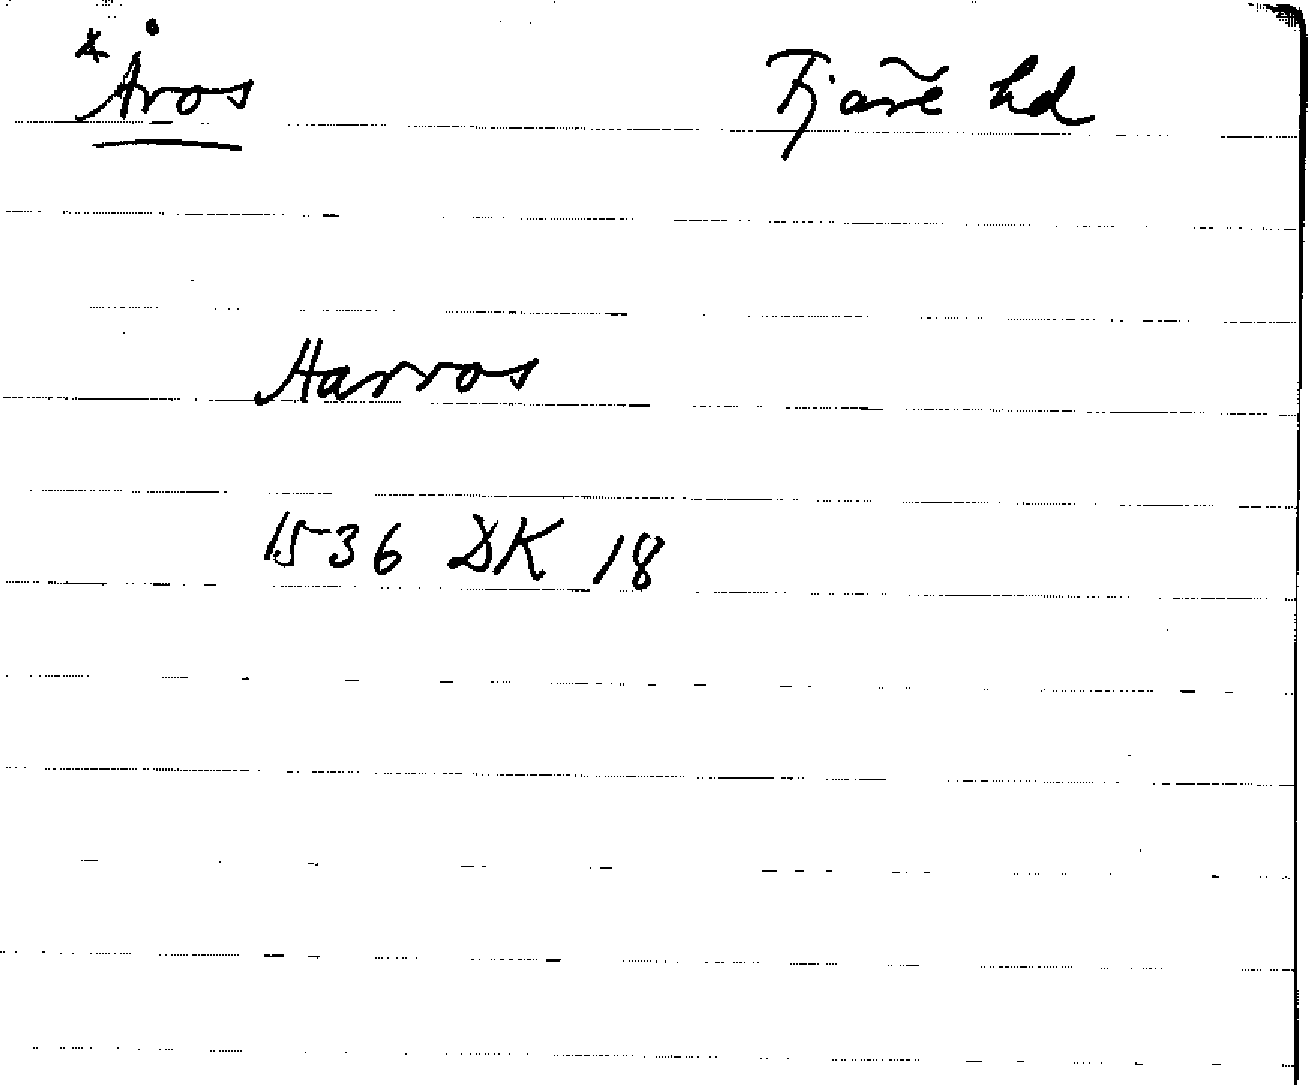 *Åros Fjäre hd
Aarros
1536 DK 18